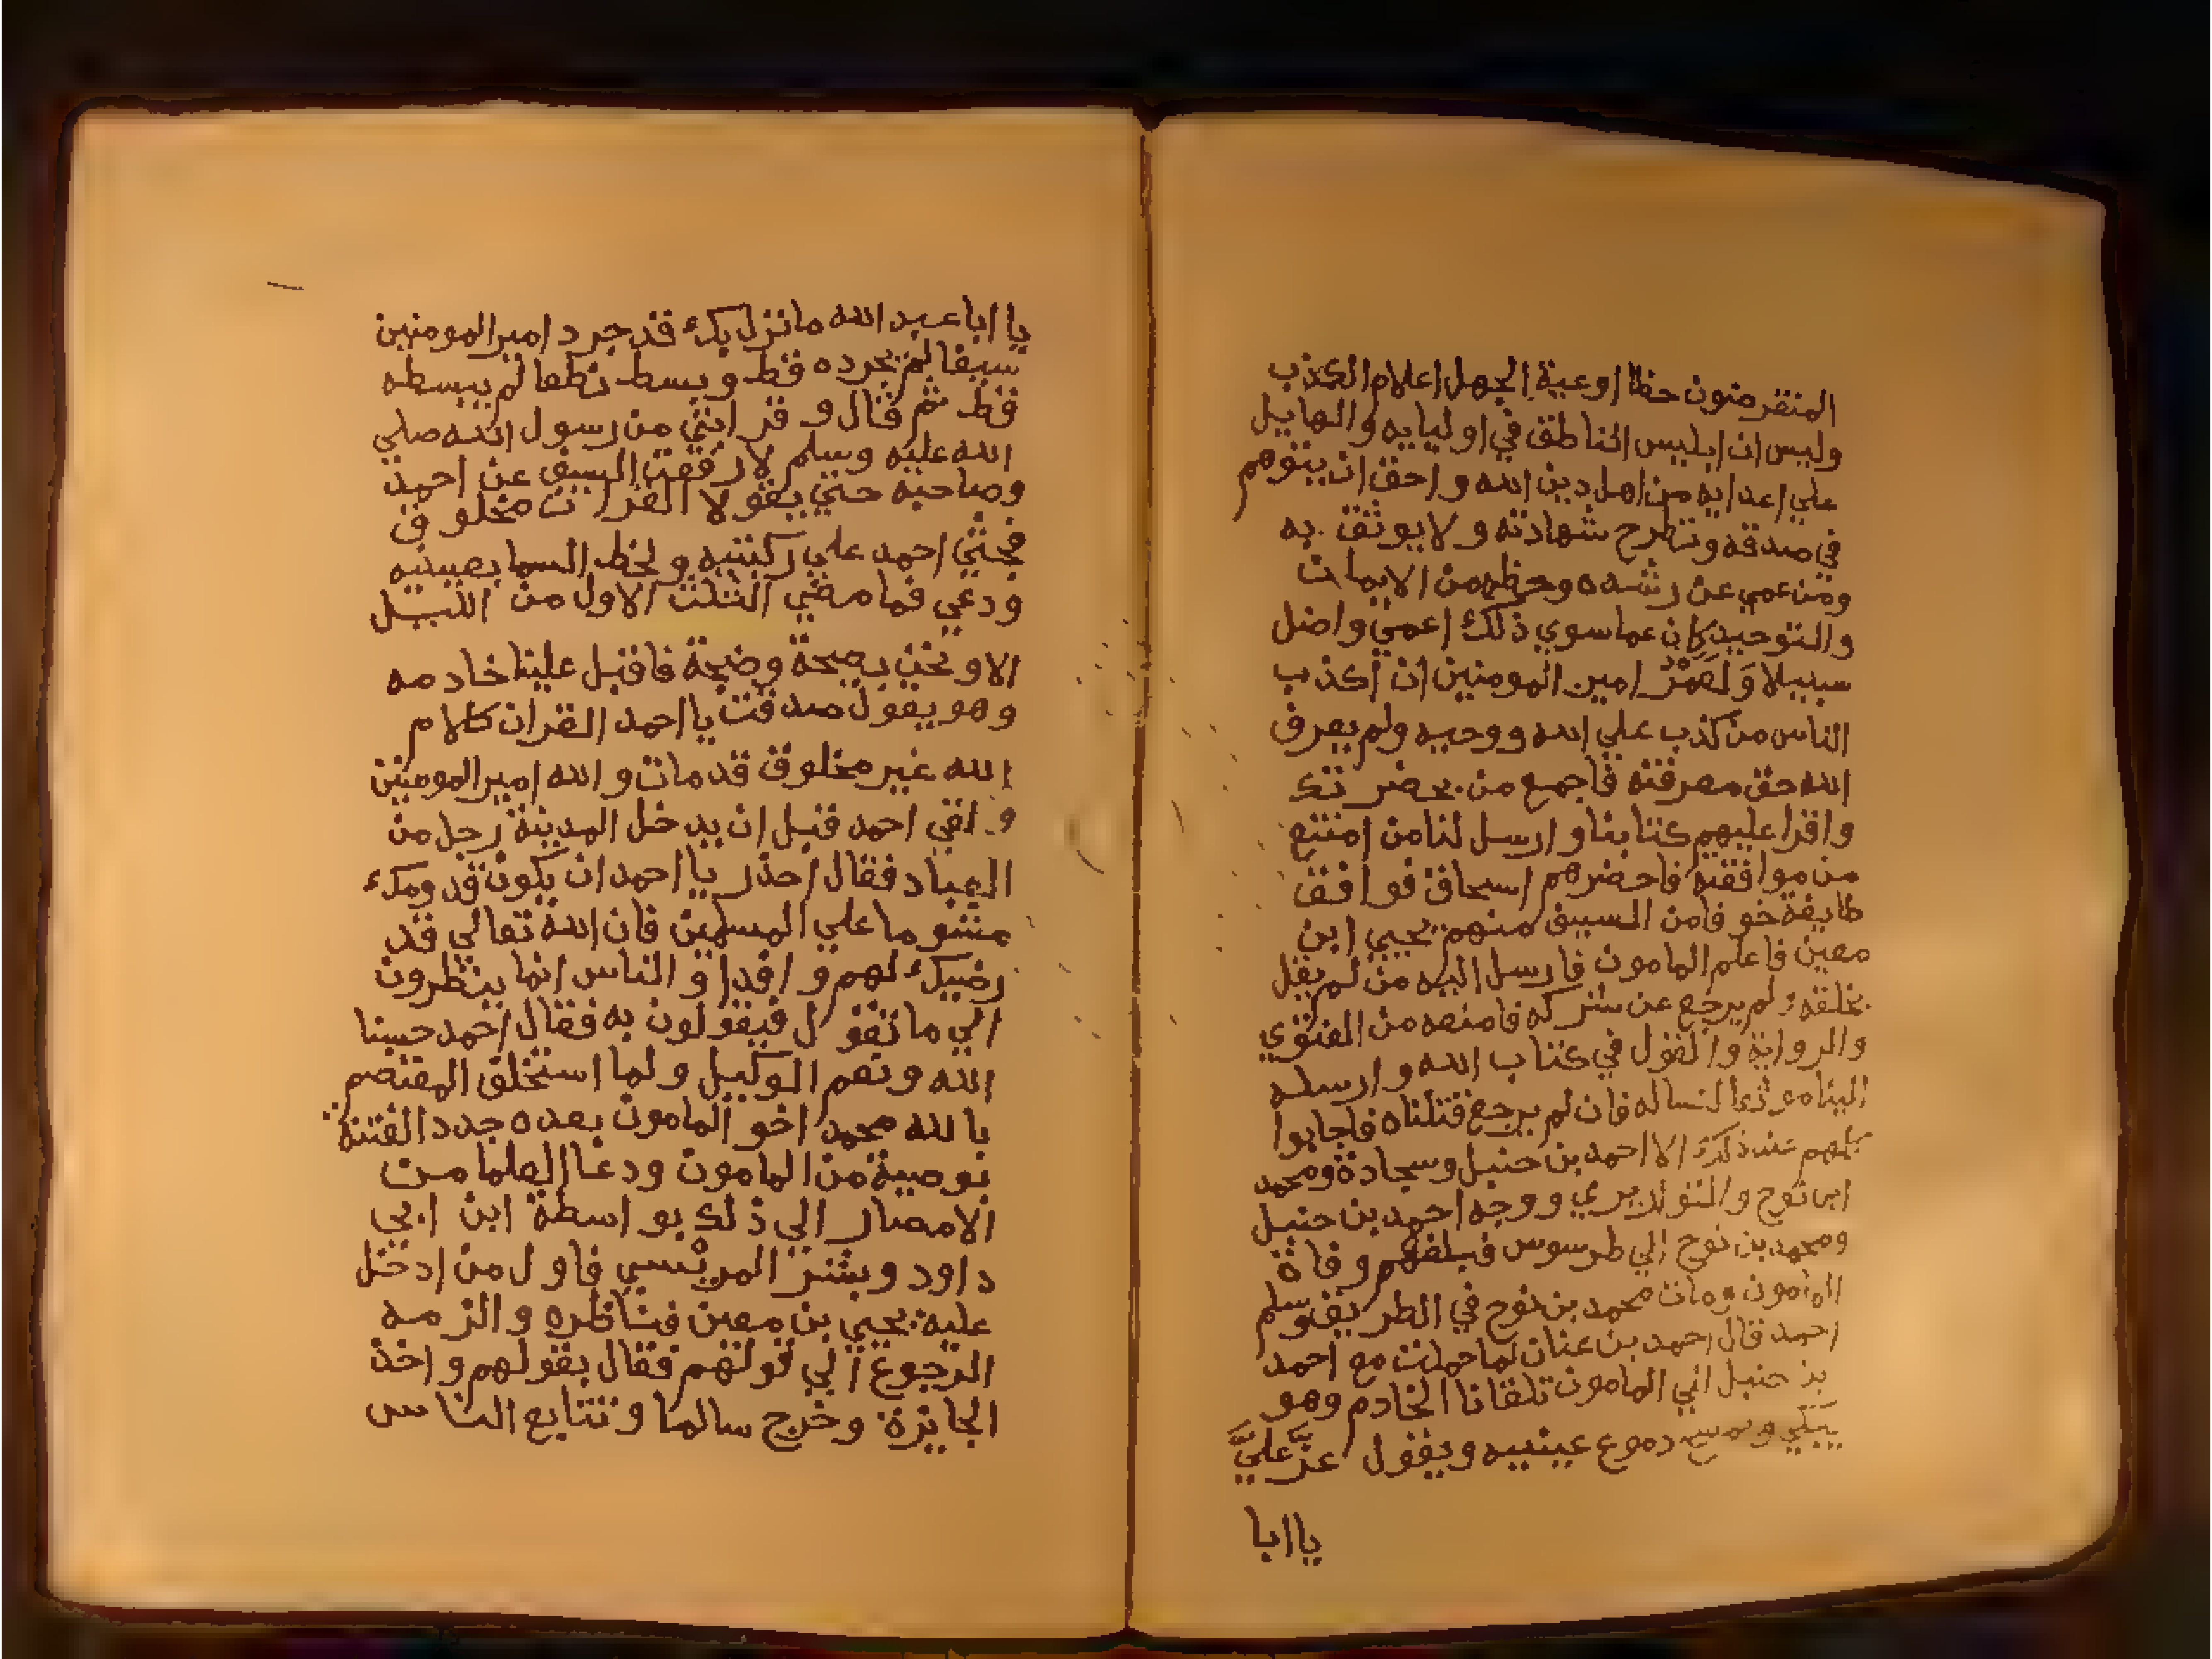 المنقرضون حظا اوعية الجهل اعلام الكذب
وليس ان ابليس الناطق في اوليايه والهايل
علي اعدايه من اهل دين الله واحق ان يتوهم
في صدقه وتطرح شهادته ولا يوثق به
ومن عمي عن رشده وحظه من الايمان
والتوحيد كان عما سوي ذلك اعمي واضل
سبيلا وَلَعَمْرُ امير المومنين ان اكذب
الناس من كذب علي الله ووحيه ولم يعرف
الله حق معرفته فاجمع من بحضرتك
واقرا عليهم كتابنا وارسل لنا من امتنع
من موافقته فاحضرهم اسحاق فوافق
طايفة خوفا من السيف منهم يحيي ابن
معين فاعلم المامون فارسل اليه من لم يقل
بخلقه ولم يرجع عن شركه فامنعه من الفتوي
والرواية والقول في كتاب الله وارسله
الينا موثقا لنساله فان لم يرجع قتلناه فاجابوا
كلهم عند ذلك الا احمد بن حنبل وسجادة ومحمد
ابن نوح والقواريري ووجه احمد بن حنبل
ومحمد بن نوح الي طرسوس فبلغهم وفاة
المامون ومات محمد بن نوح في الطريق وسلم
احمد قال احمد بن غسان لما حملت مع احمد
بن حنبل الي المامون تلقانا الخادم وهو
يبكي ويمسح دموع عينيه ويقول عزَّ عليَّ
يا ابا
يا ابا عبد الله ما نزل بك قد جرد امير المومنين
سيفا لم يجرده قط وبسط نطعا لم يبسطه
قط ثم قال وقرابتي من رسول الله صلي
الله عليه وسلم لا رفعت السيف عن احمد
وصاحبه حتي يقولا القران مخلوق
فجثي احمد علي ركبتيه ولحظ السما بعينيه
ودعي فما مضي الثلث الاول من الليل
الا ونحن بصيحة وضجة فاقبل علينا خادمه
وهو يقول صدقت يا احمد القران كلام
الله غير مخلوق قد مات والله امير المومنين
ولقي احمد قبل ان يدخل المدينة رجل من
العباد فقال احذر يا احمد ان يكون قدومك
مشوما علي المسلمين فان الله تعالي قد
رضيك لهم وافدا والناس انما ينظرون
الي ما تقول فيقولون به فقال احمد حسبنا
الله ونعم الوكيل ولما استخلف المعتصم
بالله محمد اخو المامون بعده جدد الفتنة
بوصية من المامون ودعا العلما من
الامصار الي ذلك بواسطة ابن ابي
داود وبشر المريْسي فاول من ادخل
عليه يحيي بن معين فناظره والزمه
الرجوع الي قولهم فقال بقولهم واخذ
الجايزة وخرج سالما وتتابع الناس